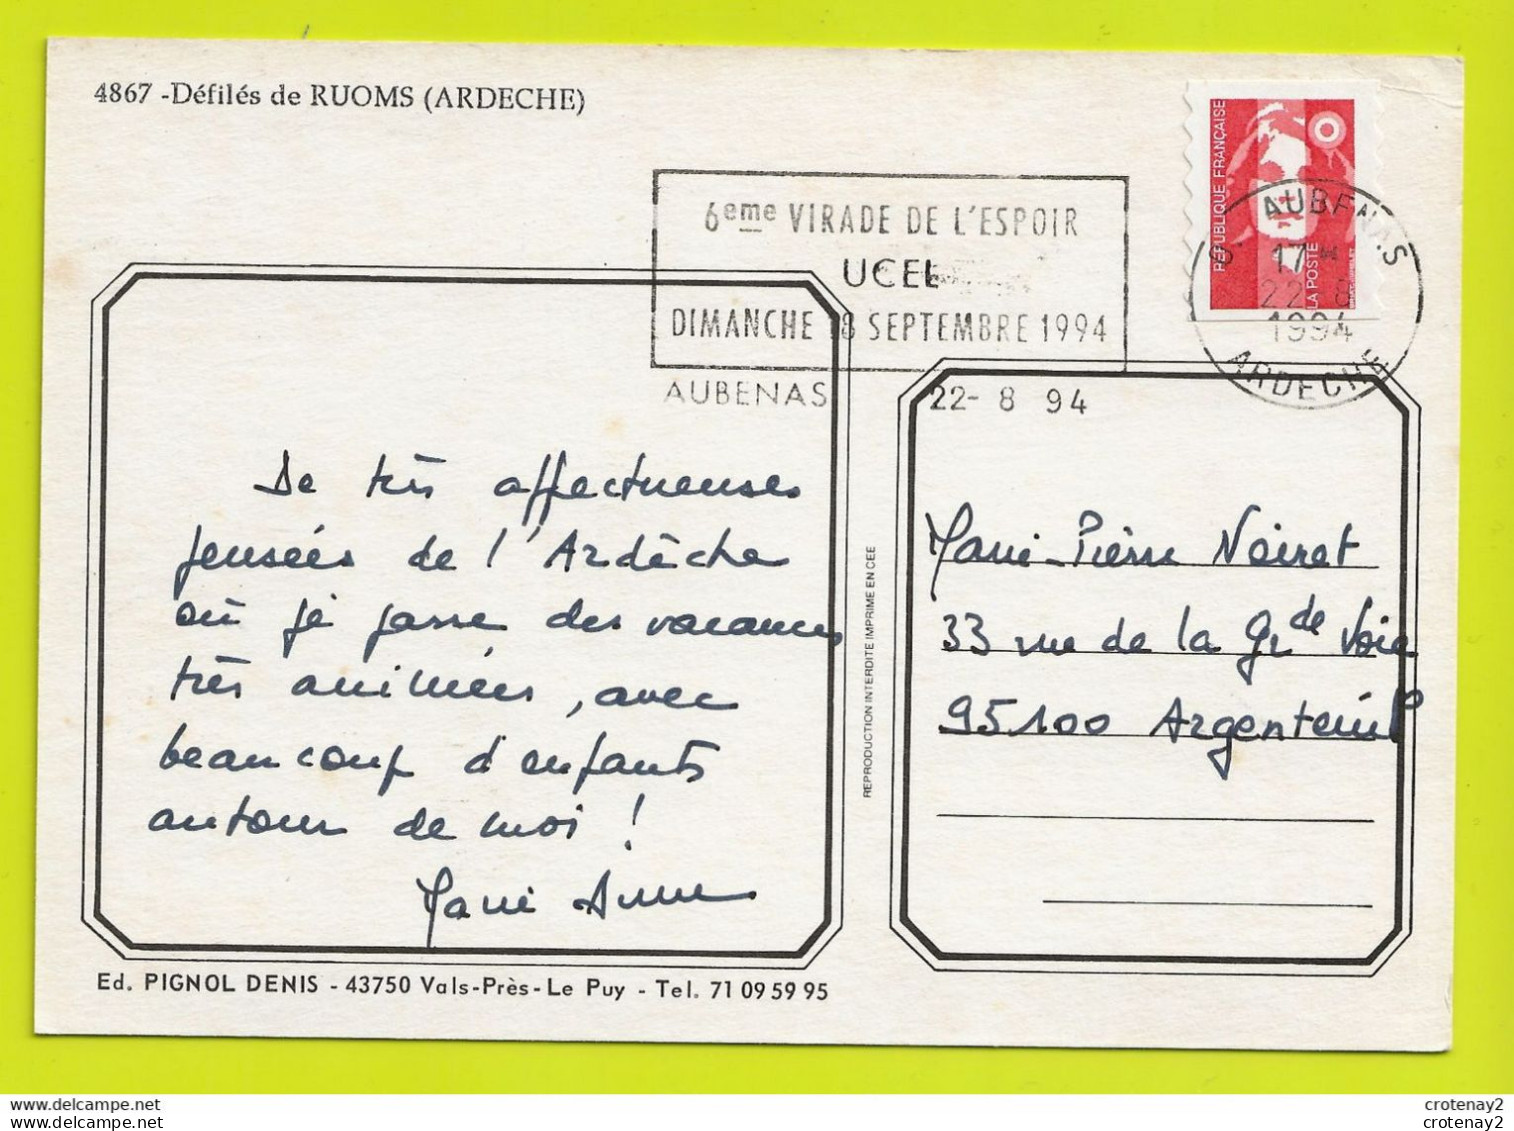 4867 - Défilés de RUOMS (ARDECHE)
RÉPUBLIQUE FRANÇAISE
LA POSTE
6eme VIRADE DE L'ESPOIR
UCEL
DIMANCHE 18 SEPTEMBRE 1994
AUBENAS
22- 8 94
AUBENAS
17 H
22-8
1994
ARDECHE
De très affectueuses
pensées de l'Ardèche
où je passe des vacances
très animées, avec
beaucoup d'enfants
autour de moi !
Marie Anne
REPRODUCTION INTERDITE IMPRIME EN CEE
Marie-Pierre Noiret
33 rue de la Grde Voie
95100 Argenteuil
Ed. PIGNOL DENIS - 43750 Vals-Près-Le Puy - Tel. 71 09 59 95
crotenay2
crotenay2
crotenay2
crotenay2